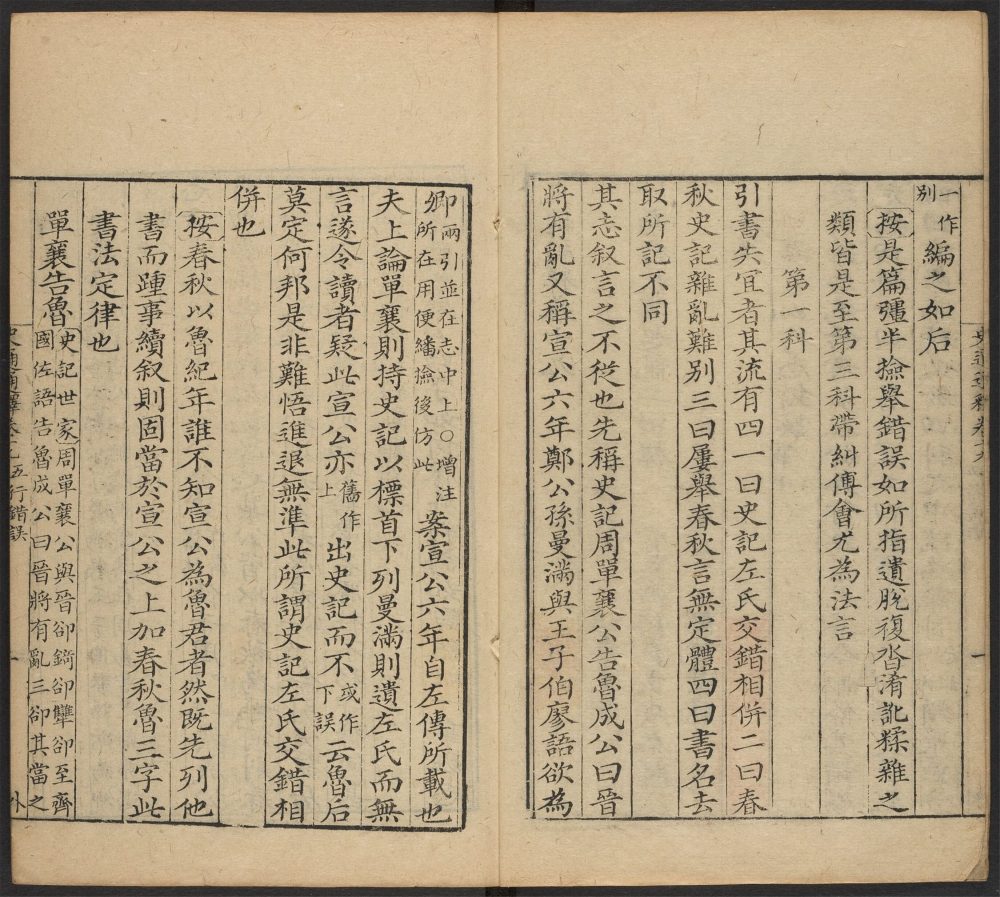 一作別編之如后
按是篇彊半撿舉錯誤如所指遺脫複沓淆訛糅雜之
類皆是至第三科帶糾傅會尤為法言
第一科
引書失宜者其流有四一曰史記左氏交錯相併二曰春
秋史記雜亂難別三曰屢舉春秋言無定體四曰書名去
取所記不同
其志叙言之不從也先稱史記周單襄公告魯成公曰晉
將有亂又稱宣公六年鄭公孫曼滿與王子伯廖語欲為
卿兩引並在志中上○增注所在用便繙撿後仿此案宣公六年自左傳所載也
夫上論單襄則持史記以標首下列曼滿則遺左氏而無
言遂令讀者疑此宣公亦舊作上出史記而不或作下誤云魯后
莫定何邦是非難悟進退無準此所謂史記左氏交錯相
併也
按春秋以魯紀年誰不知宣公為魯君者然既先列他
書而踵事續叙則固當於宣公之上加春秋魯三字此
書法定律也
單襄告魯史記世家周單襄公與晉郤錡郤犫郤至齊國佐語告魯成公曰晉將有亂三郤其當之
五行錯誤
外